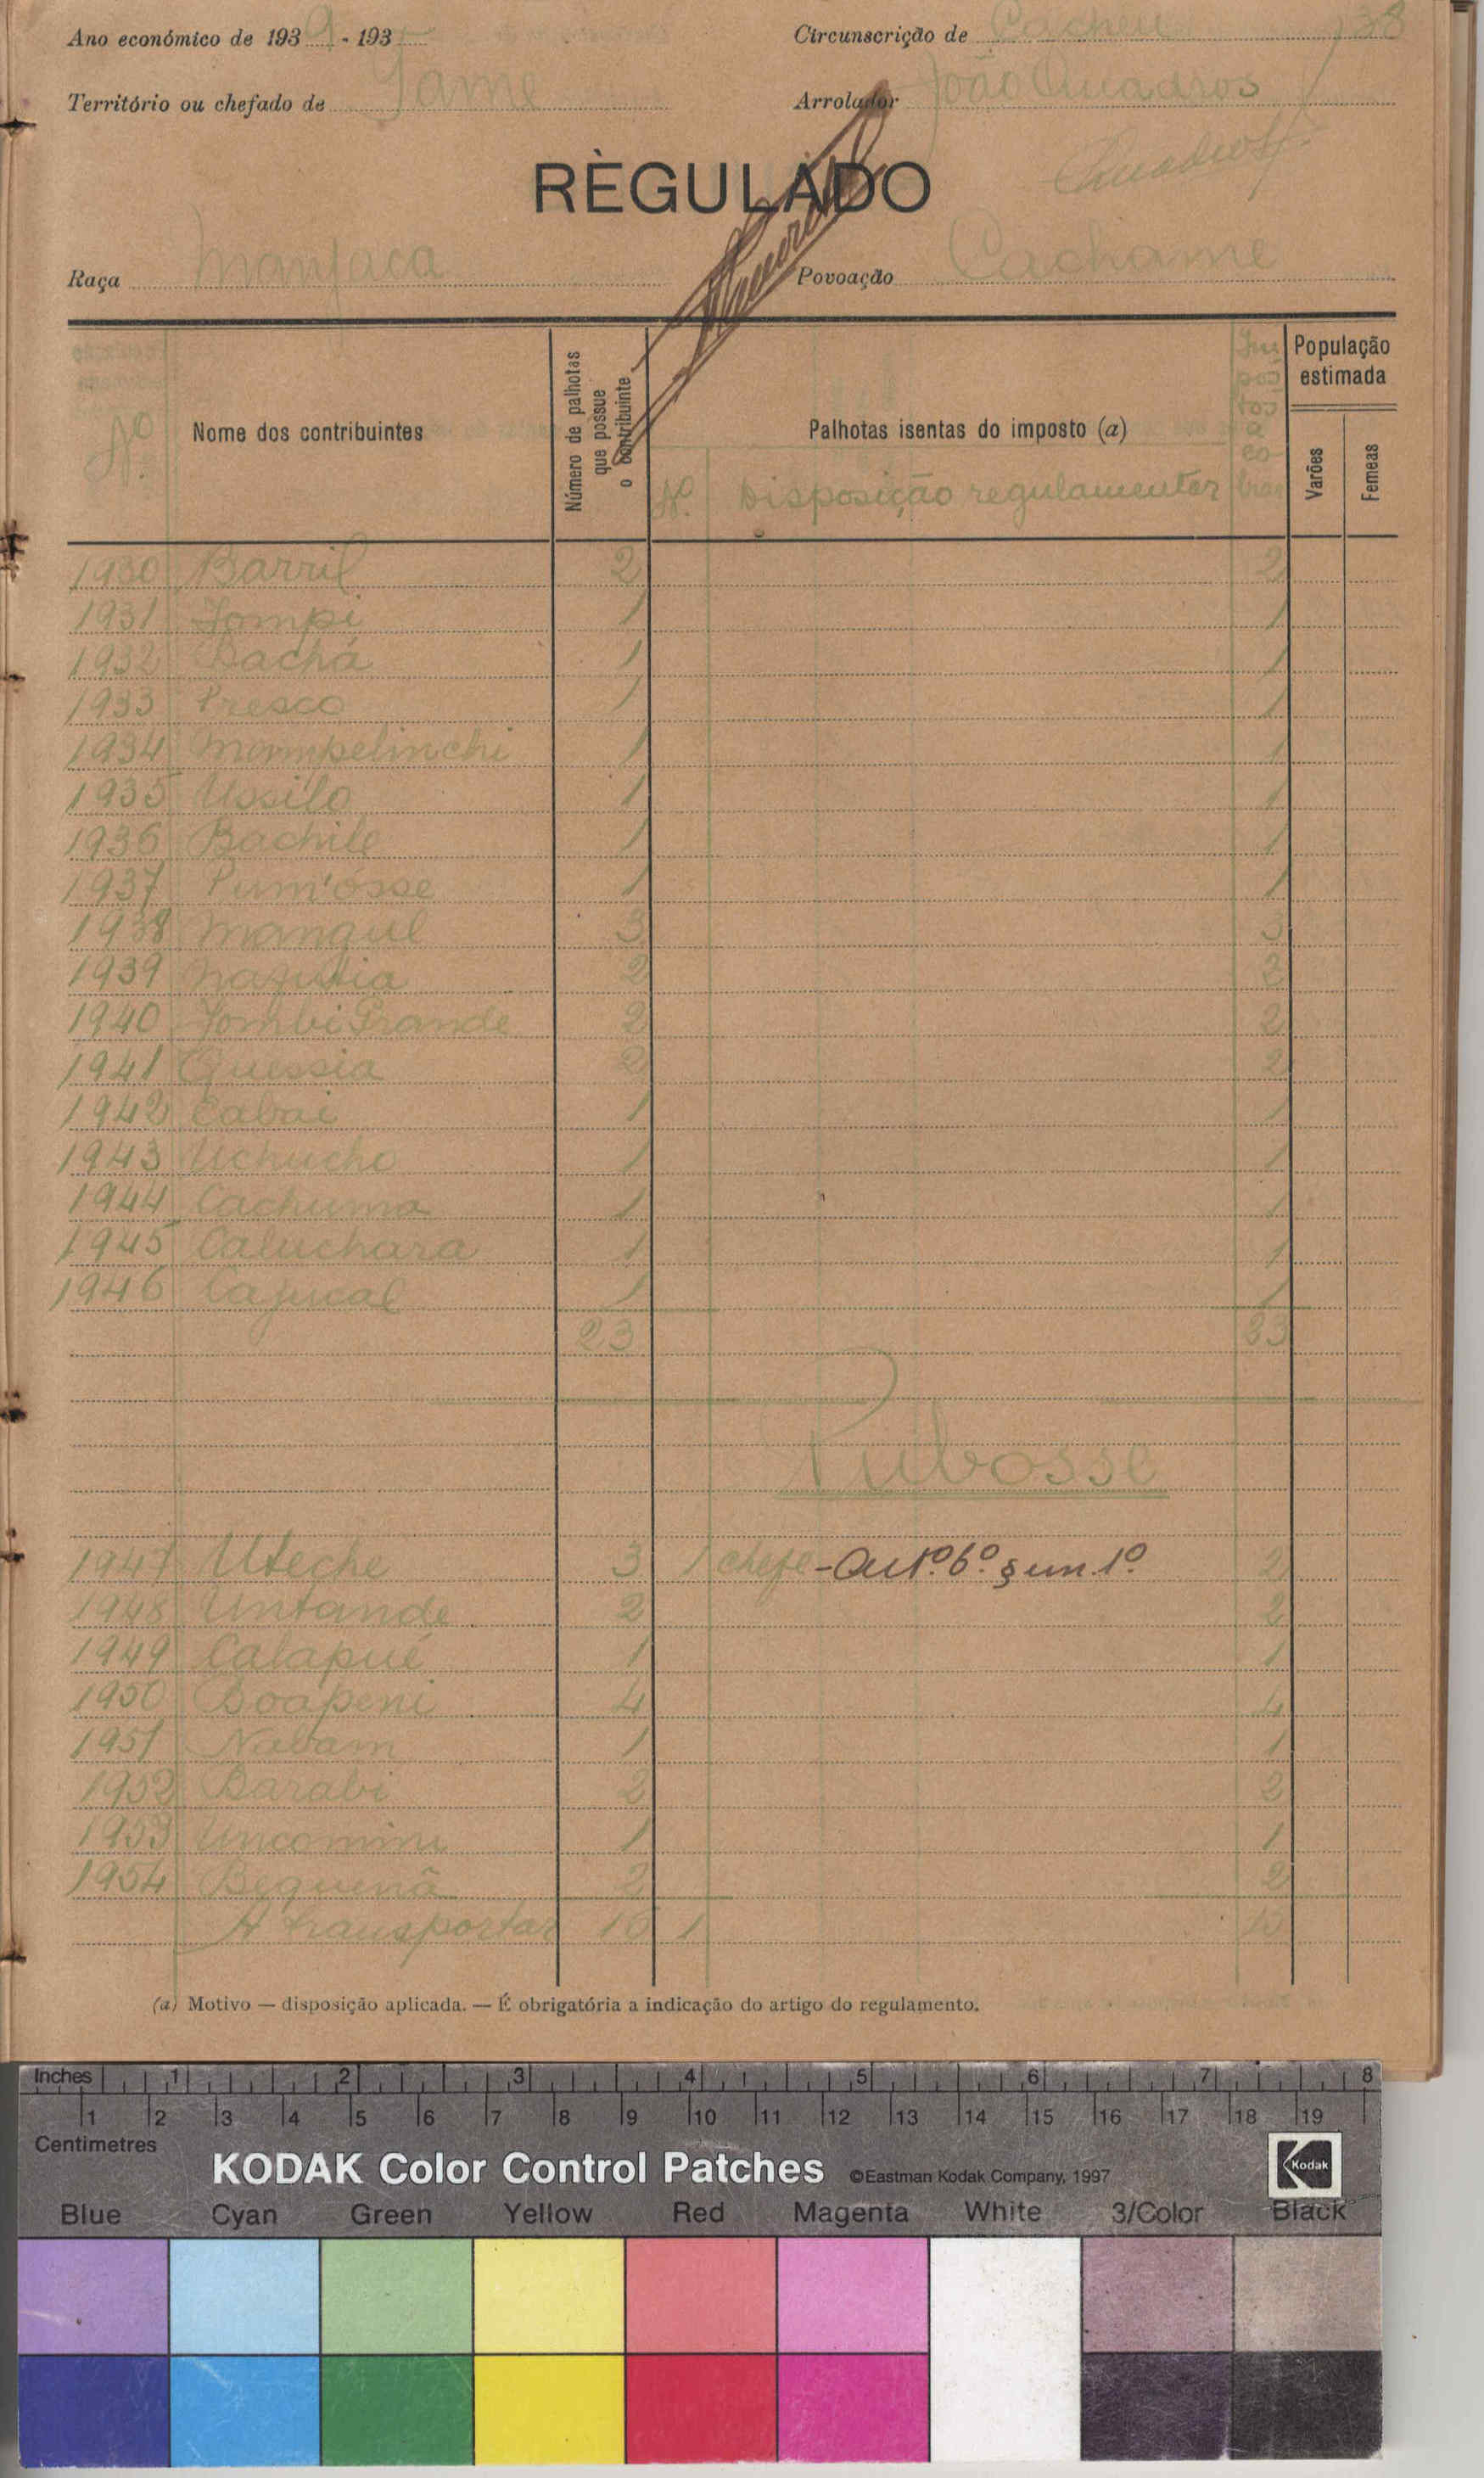 Ano económico de 1939 - 193 Circunscrição de Cacheu 138
Território ou chefado de Jame Arrolador João Quadros
RÈGULADO
Raça Manjaca Povoação Cachame
Nº Nome dos contribuintes Número de palhotas que possue o contribuinte Palhotas isentas do imposto (a) Impostos a cobrar População estimada
Nº Disposição regulamentar Varões Femeas
1930 Barril 2 2
1931 Jompi 1 1
1932 Bachá 1 1
1933 Presco 1 1
1934 Mompelinchi 1 1
1935 Ussilo 1 1
1936 Bachile 1 1
1937 Pum'osse 1 1
1938 Mangul 3 3
1939 2 2
1940 Jombi Grande 2 2
1941 Quessia 2 2
1942 Cabai 1 1
1943 Uchucho 1 1
1944 Cachuma 1 1
1945 Caluchara 1 1
1946 Cajucal 1 1
23 23
Pubosse
1947 Uteche 3 1 chefe - Artº. 6º. § um. 1º 2
1948 Untande 2 2
1949 Calapué 1 1
1950 Boapeni 4 4
1951 Nabam 1 1
1952 Barabi 2 2
1953 Uncomini 1 1
1954 Bequenã 2 2
A transportar 16 1 15
(a) Motivo — disposição aplicada. — É obrigatória a indicação do artigo do regulamento.
Inches 1 2 3 4 5 6 7 8
1 2 3 4 5 6 7 8 9 10 11 12 13 14 15 16 17 18 19
Centimetres
KODAK Color Control Patches ©Eastman Kodak Company, 1997 Kodak
Blue Cyan Green Yellow Red Magenta White 3/Color Black